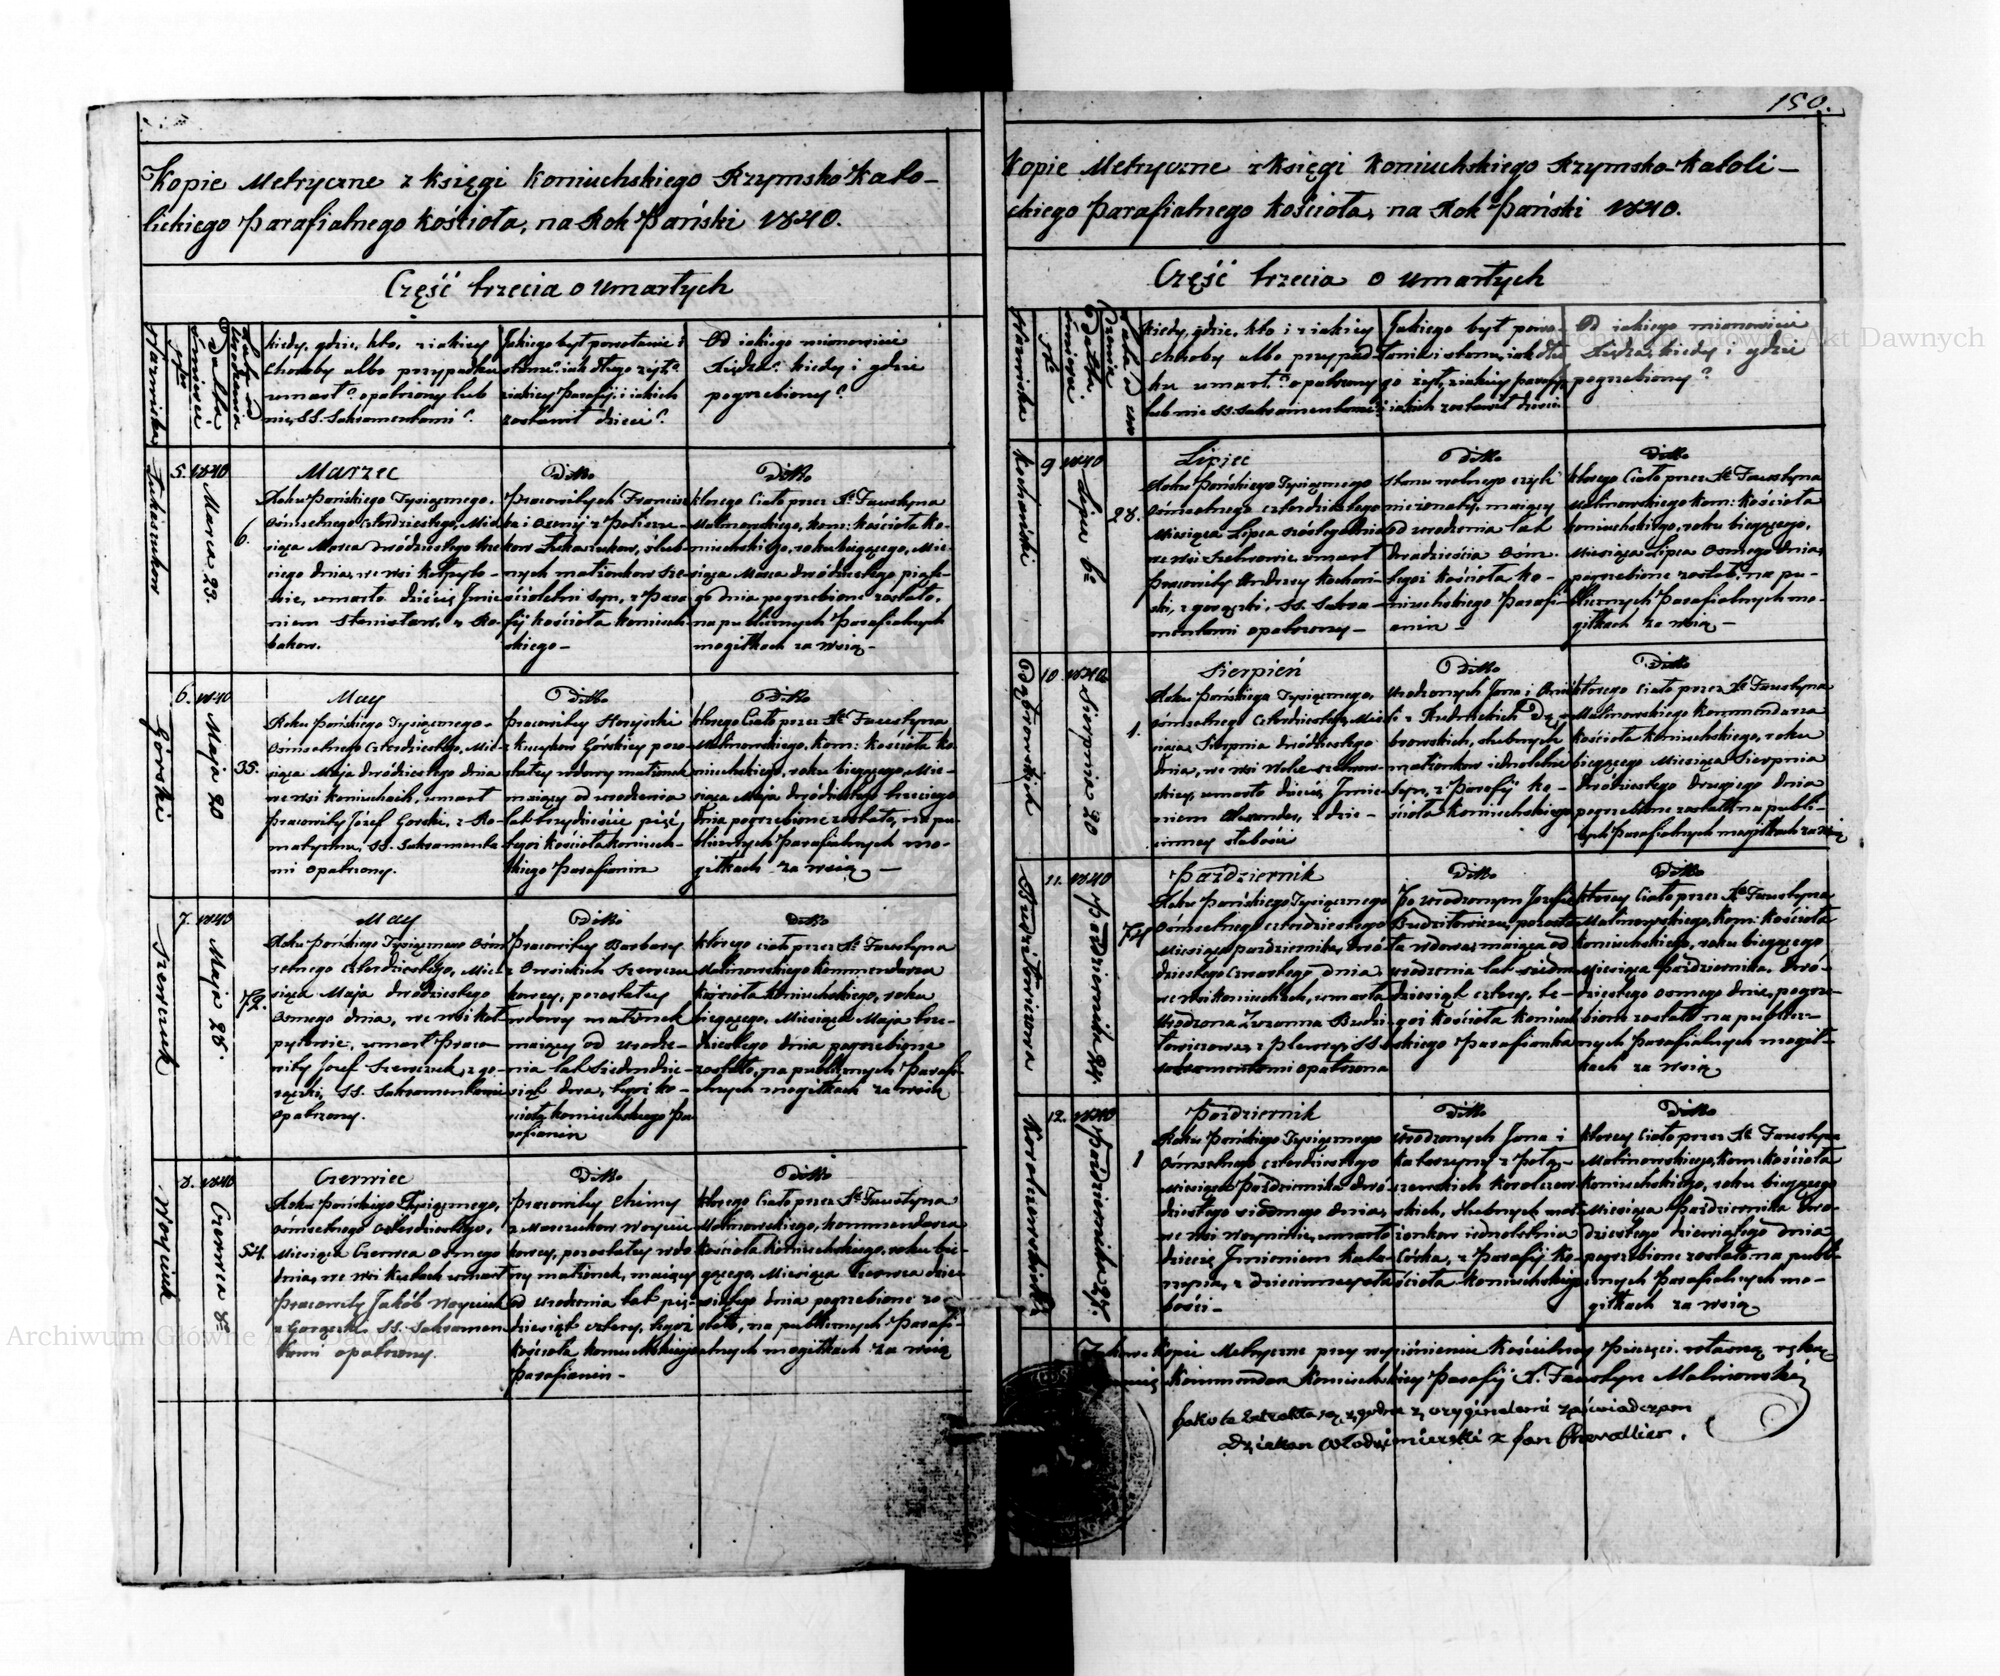 150.
Kopie Metryczne z Księgi Koniuchskiego Rzymsko-Kato-
lickiego Parafialnego Kościoła, na Rok Pański 1840.
Część trzecia o umarłych
Nazwiska
Nro
Data śmierci
Lata od urodzenia
Kiedy, gdzie, kto, z iakiey
choroby albo przypadku
umarł? opatrzony lub
nie, SS. Sakramentami?
Jakiego był powołania i
stanu? iak długo żył?
z iakiey Parafij i iakich
zostawił dzieci?
Od iakiego mianowicie
Xiędza? kiedy i gdzie
pogrzebiony?
Łukaszukow
5.
1840
Marca 23.
6.
Marzec
Roku Pańskiego Tysiącznego,
Ośmsetnego Czterdziestego, Mie-
siąca Marca dwódziestego trze-
ciego dnia, we wsi Kotpyto-
wie, umarło dziecię Jmie-
niem Stanisław, z Ro-
bakow.
Ditto
Pracowitych Francisz-
ka i
Łukaszukow, ślub-
nych małżonkow sze-
ścioletni Syn, z Para-
fij Kościoła Koniuch-
skiego -
Ditto
ktorego Ciało przez Xa Faustyna
Malinowskiego, kom: Kościoła Ko-
niuchskiego, roku biegącego, Mie-
siąca Marca dwódziestego piąte-
go dnia pogrzebione zostało,
na publicznych Parafialnych
mogiłkach za wsią -
Górski
6.
1840
Maja 20
35.
May
Roku Pańskiego Tysiącznego -
Ośmsetnego Czterdziestego, Mie-
siąca Maja dwódziestego dnia
we wsi Koniuchach, umarł
Pracowity Józef Gorski, z Ro-
matyzmu, SS. Sakramenta-
mi opatrzony.
Ditto
Pracowitey
Górskiey pozo-
stały wdowy małżonek
maiący od urodzenia
lat trzydzieście pięć,
tegoż Kościoła Koniuch-
skiego Parafianin
Ditto
ktorego Ciało przez Xa Faustyna
Malinowskiego, kom: Kościoła Ko-
niuchskiego, roku biegącego, Mie-
siąca Maja dwódziestego trzeciego
dnia pogrzebione zostało, na pu-
blicznych Parafialnych mo-
giłkach za wsią -
Szewczuk
7.
1840
Maja 28.
72.
May
Roku Pańskiego Tysiącznego Ośm-
setnego Czterdziestego, Mie-
siąca Maja dwódziestego
osmego dnia, we wsi Kot-
pytowie, umarł Praco-
wity Józef Szewczuk, z go-
rączki, SS. Sakramentami
opatrzony.
Ditto
Pracowitey Barbary
z Owsickich Szewczu-
kowey, pozostałey
wdowy małżonek
maiący od urodze-
nia lat Siedmdzie-
siąt dwa, tegoż Ko-
ścioła Koniuchskiego Pa-
rafianin
Ditto
ktorego ciało przez Xa Faustyna
Malinowskiego Kommendarza
Kościoła Koniuchskiego, roku
biegącego, Miesiąca Maja trze-
dziestego dnia pogrzebione
zostało, na publicznych Parafi-
alnych mogiłkach za wsią
Woyciuk
8.
1840
Czerwca 8go
54.
Czerwiec
Roku Pańskiego Tysiącznego,
Ośmsetnego Czterdziestego,
Miesiąca Czerwca osmego
dnia, we wsi umarł
Pracowity Jakób Woyciuk
z Gorączki, SS. Sakramen-
tami opatrzony.
Ditto
Pracowitey
z Marczukow Woyciu-
kowey, pozostałey wdo-
wy małżonek, maiący
od urodzenia lat pięć-
dziesiąt cztery, tegoż
Kościoła Koniuchskiego
Parafianin -
Ditto
ktorego Ciało przez Xa Faustyna
Malinowskiego, Kommendarza
Kościoła Koniuchskiego, roku bie-
gącego, Miesiąca Czerwca dzie-
wiątego dnia pogrzebione zo-
stało, na publicznych Parafi-
alnych mogiłkach za wsią
Kopie Metryczne z Księgi Koniuchskiego Rzymsko-Katoli-
ckiego Parafialnego Kościoła, na Rok Pański 1840.
Część trzecia o umarłych
Nazwiska
Nro
Data śmierci
Lata od uro-
dzenia
Kiedy, gdzie, kto i z iakiey
choroby albo przypad-
ku umarł? opatrzony
lub nie SS. Sakramentami?
Jakiego był powo-
łania i stanu, iak dłu-
go żył, z iakiey Parafij
i iakich zostawił dzieci
Od iakiego mianowicie
Xiędza, kiedy i gdzie
pogrzebiony?
Kochański
9
1840
Lipca 6o
28.
Lipiec
Roku Pańskiego Tysiącznego
Ośmsetnego czterdziestego
Miesiąca Lipca szóstego dnia
we wsi Szelwowie umarł
Pracowity Andrzey Kochań-
ski, z gorączki, SS. Sakra-
mentami opatrzony -
Ditto
stanu wolnego czyli
nieżonaty, maiący
od urodzenia lat
dwadzieścia ośm.
tegoż Kościoła Ko-
niuchskiego Parafi-
anin -
Ditto
ktorego Ciało przez Xa Faustyna
Malinowskiego kom: Kościoła
Koniuchskiego, roku biegącego,
Miesiąca Lipca Osmego dnia,
pogrzebione zostało, na pu-
blicznych Parafialnych mo-
giłkach za wsią -
Dąbrowskich
10
1840
Sierpnia 20
1.
Sierpień
Roku Pańskiego Tysiącznego,
Ośmsetnego Czterdziestego, Mie-
siąca, Sierpnia dwódziestego
dnia, we wsi Wolce Szelwow-
skiey, umarło dziecię Jmie-
niem Alexander, z dzie-
cinney słabości
Ditto
Urodzonych Jana i
z Rudnickich Dą-
browskich, ślubnych
małżonkow iednoletni
Syn, z Parafij Ko-
ścioła Koniuchskiego
Ditto
ktorego Ciało przez Xa Faustyna
Malinowskiego Kommendarza
Kościoła Koniuchskiego, roku
biegącego Miesiąca Sierpnia
Dwódziestego drugiego dnia
pogrzebione zostało, na publi-
cznych Parafialnych mogiłkach za wsią
Budziłowiczowa
11.
1840
Października 24.
74
Październik
Roku Pańskiego Tysiącznego
Ośmsetnego czterdziestego
Miesiąca października, dwó-
dziestego czwartego dnia,
we wsi Koniuchach, umarła
Urodzona Zuzanna Budzi-
łowiczowa, z Plewry, SS.
Sakramentami opatrzona
Ditto
Po Urodzonym Jozefie
Budziłowiczu, pozosta-
ła wdowa, maiąca od
urodzenia lat siedm-
dziesiąt cztery, te-
goż Kościoła Koniuch-
skiego Parafianka
Ditto
ktorey Ciało przez Xa Faustyna
Malinowskiego, kom: Kościoła
Koniuchskiego, roku biegącego
Miesiąca Października, dwó-
dziestego osmego dnia, pogrze-
bione zostało na publicz-
nych Parafialnych mogił-
kach za wsią
Koralczewskich
12.
1840
Października 27.
1
Październik
Roku Pańskiego Tysiącznego
Ośmsetnego czterdziestego
Miesiąca Października dwó-
dziestego siódmego dnia,
we wsi Woyninie, umarło
dziecię, Jmieniem Kata-
rzyna, z dziecinney sła-
bości -
Ditto
Urodzonych Jana i
Katarzyny z
Koralczew-
skich, ślubnych mał-
żonkow iednoletnia
Córka, z Parafij Ko-
ścioła Koniuchskiego
Ditto
ktorey Ciało przez Xa Faustyna
Malinowskiego, Kom: Kościoła
Koniuchskiego, roku biegącego
Miesiąca Października dwó-
dziestego dziewiątego dnia
pogrzebione zostało na publi-
cznych Parafialnych mo-
giłkach za wsią
Kopie Metryczne przy wyciśnieniu Kościelney Pieczęci własną ręką
Kommendarz Koniuchskiey Parafij X. Faustyn Malinowski
Jako te Extrakta są zgodne z oryginałami zaświadczam
Dziekan Włodzimierski X Jan Chevallier.
Archiwum Główne Akt Dawnych
Archiwum Główne Akt Dawnych